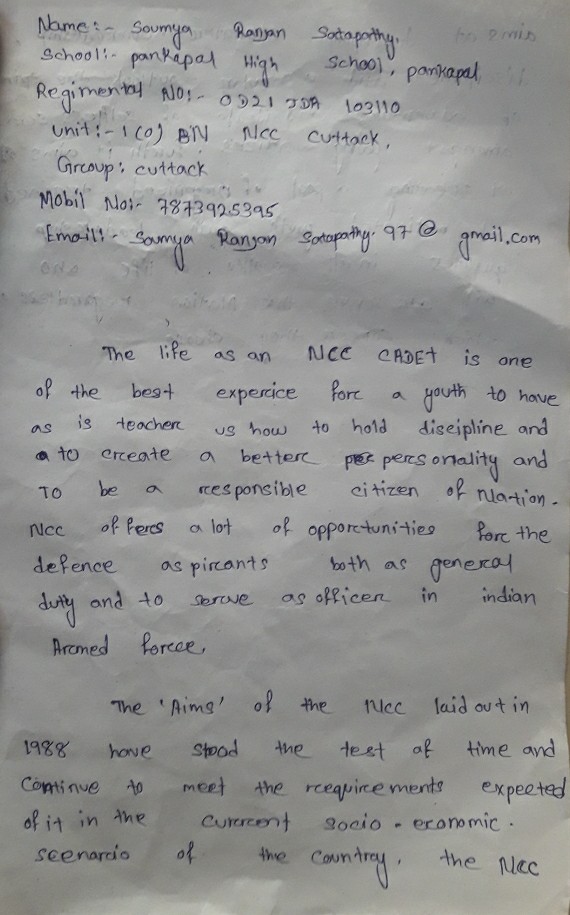 Name:- Soumya Ranjan Satapathy.
School:- pankapal High School, pankapal
Regimental NO:- OD21 JDA 103110
Unit:- 1(O) BN NCC Cuttack.
Group: cuttack
Mobil No:- 7873925395
Email:- Soumya Ranjan Satapathy.97@gmail.com
The life as an NCC CADET is one
of the best experice for a youth to have
as is teacher us how to hold discipline and
to create a better personality and
TO be a responsible citizen of Nation.
NCC offers a lot of opportunities for the
defence aspirants both as general
duty and to serve as officer in indian
Armed forcee.
The 'Aims' of the NCC laid out in
1988 have stood the test of time and
Continue to meet the requirements expected
of it in the current socio-economic.
scenario of the country. the NCC